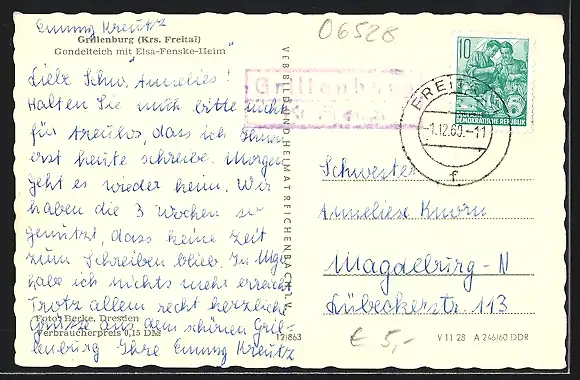 Emmy Kreutz
06528
Grillenburg (Krs. Freital)
Gondelteich mit Elsa-Fenske-Heim
Liebe Schw. Annelies!
Halten Sie mich bitte nicht
für treulos, dass ich Ihnen
erst heute schreibe. Morgen
geht es wieder heim. Wir
haben die 3 Wochen so
genützt, dass keine Zeit
zum Schreiben blieb. In Mgb.
habe ich nichts mehr erreicht
Trotz allem recht herzliche
Grüsse aus dem schönen Gril-
lenburg Ihre Emmy Kreutz
Foto: Berke, Dresden
Verbraucherpreis 0,15 DM
VEB BILD UND HEIMAT REICHENBACH I. V.
12/863
Grillenburg
10
DEUTSCHE DEMOKRATISCHE REPUBLIK
FREITAL
-1.12.60.-11
f
Schwester
Anneliese Knorn
Magdeburg-N
Lübeckerstr. 113
€ 5,-
V 11 28 A 246/60 DDR